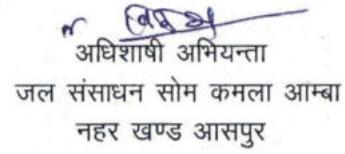 अधिशाषी अभियन्ता
जल संसाधन सोम कमला आम्बा
नहर खण्ड आसपुर